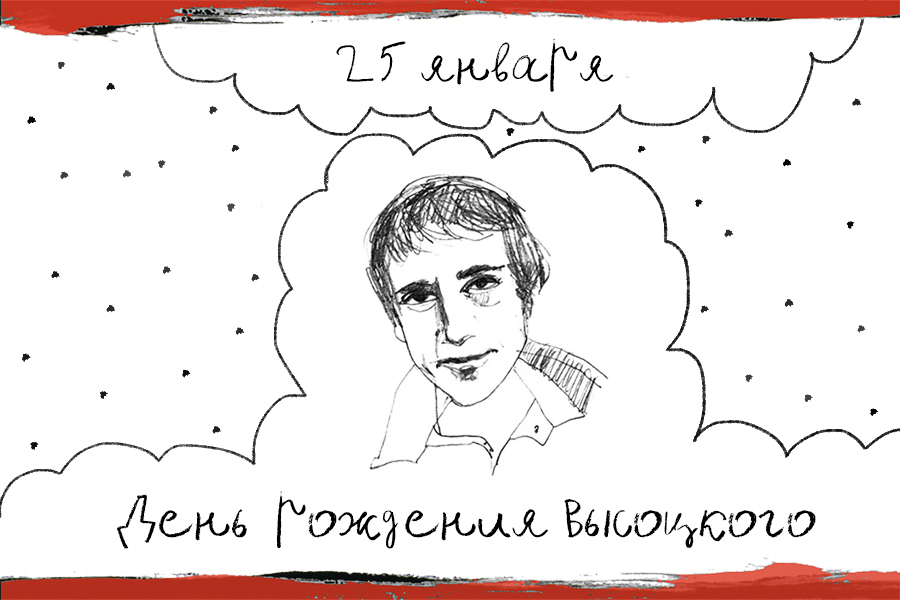 25 января
День рождения Высоцкого